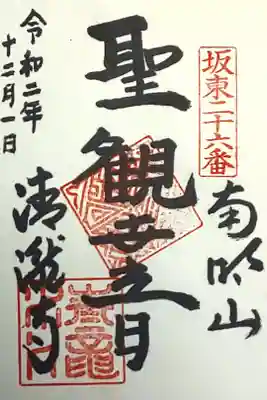 坂東二十六番
南明山
聖観音
清瀧寺
令和二年
十二月一日